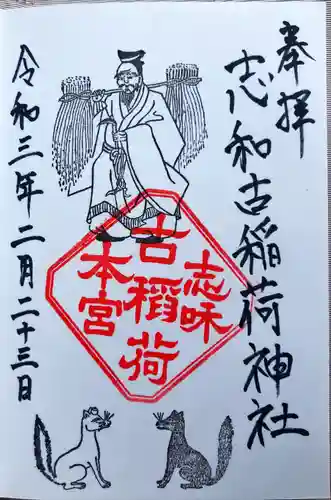 奉拝
志和古稲荷神社
志味
古稲荷
本宮
令和三年二月二十三日